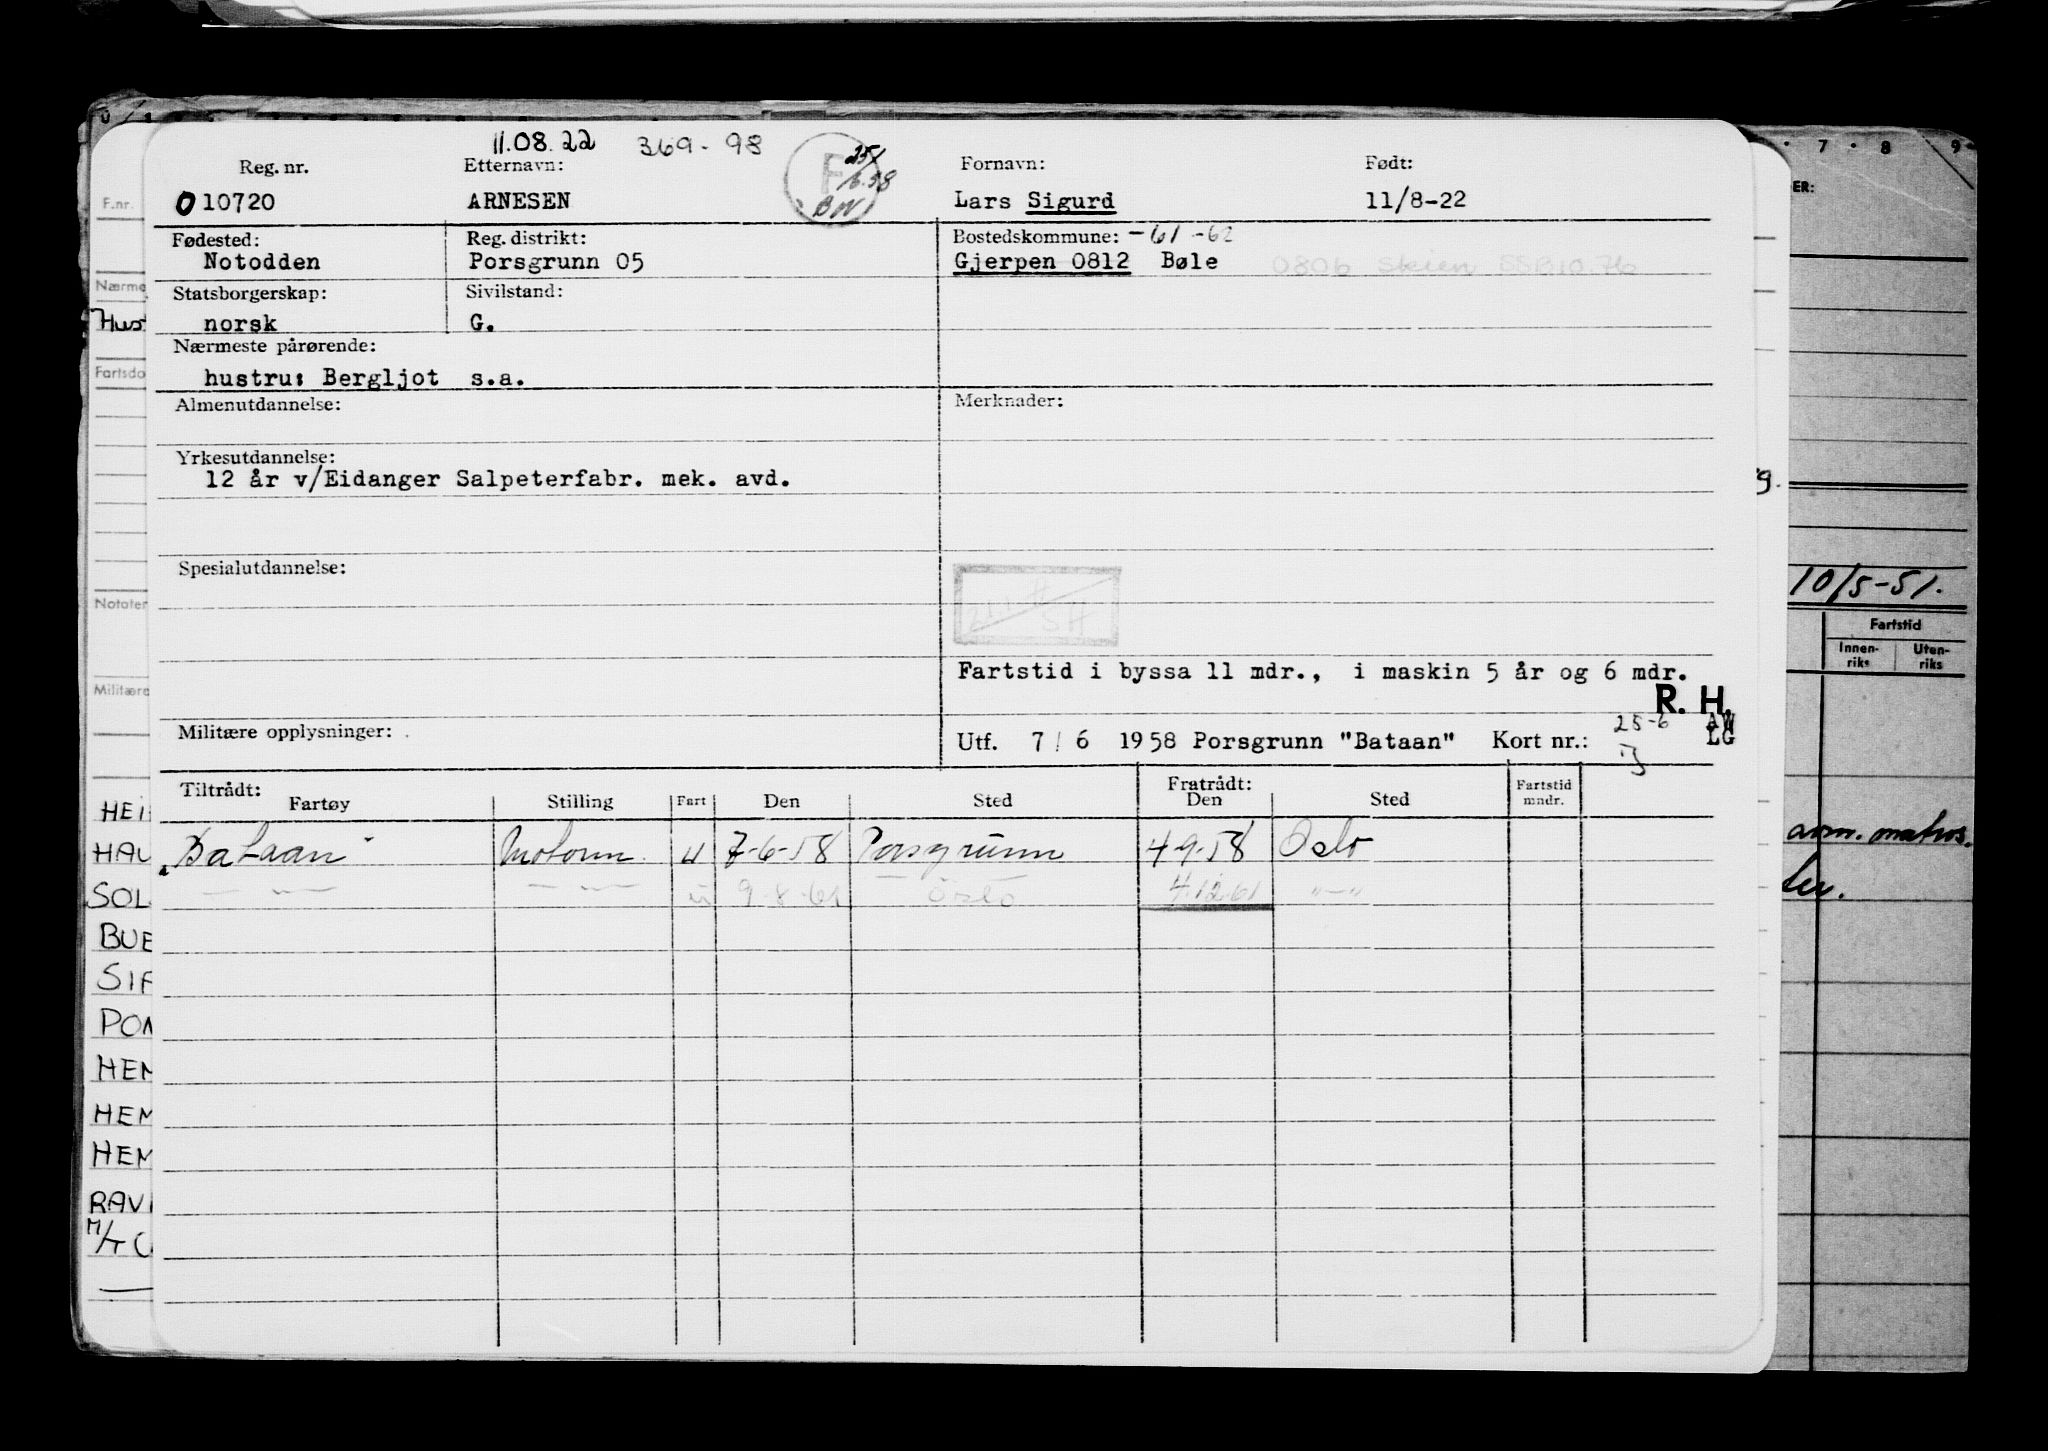 11.08.22 369-98
Reg. nr. Etternavn: Fornavn: Født:
010720 ARNESEN Lars Sigurd 11/8-22
F 25/6.58 BW
Fødested: Reg. distrikt: Bostedskommune: -61-62
Notodden Porsgrunn 05 Gjerpen 0812 Bøle 0806 Skien SSB 10.76
Statsborgerskap: Sivilstand:
norsk G.
Nærmeste pårørende:
hustru: Bergljot s.a.
Almenutdannelse: Merknader:
Yrkesutdannelse:
12 år v/Eidanger Salpeterfabr. mek. avd.
Spesialutdannelse:
SH
Fartstid i byssa 11 mdr., i maskin 5 år og 6 mdr.
R. H.
Militære opplysninger:
Utf. 7/6 1958 Porsgrunn "Bataan" Kort nr.: 25-6 LG
Tiltrådt: Fratrådt:
Fartøy Stilling Fart Den Sted Den Sted Fartstid mndr.
"Bataan" Motorm. U 7-6-58 Porsgrunn 4-9-58 Oslo
— " — — " — u 9-8-61 Oslo 4.12.61 "—"
F.nr.
Nærme
Hust
Fartsdo
Notater
Militære
HEI
HAU
SOL
BUE
SIR
POM
HEM
HEM
HEM
RAV
M/T
7 8 9
ER:
9.
10/5-51.
Fartstid
Innen-riks Uten-riks